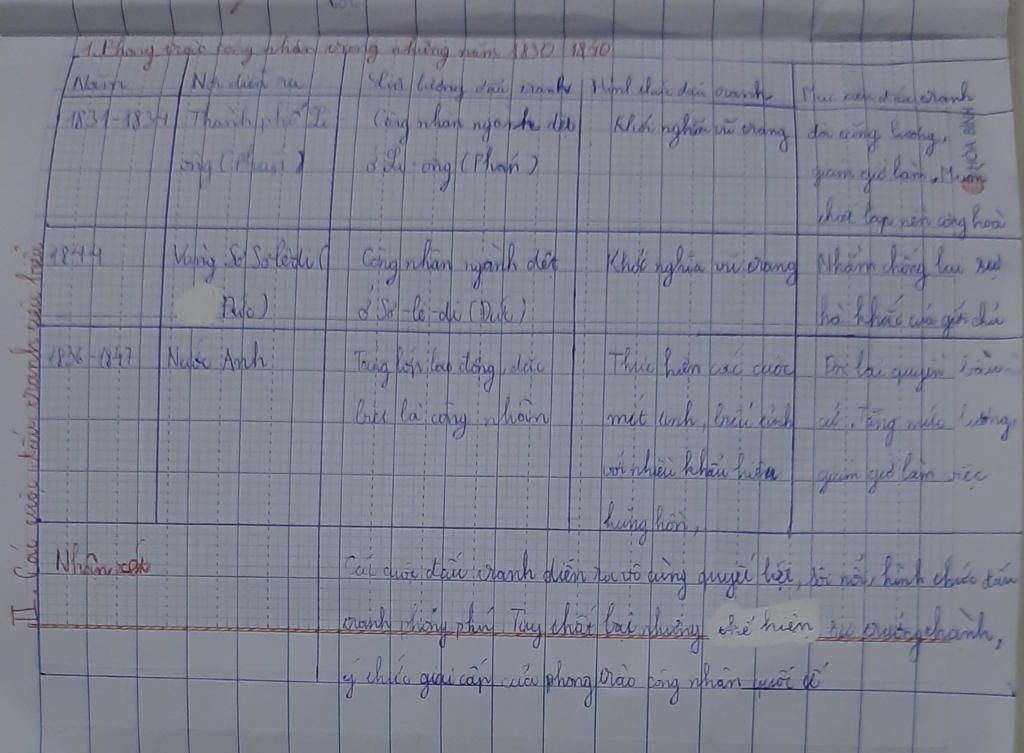 1. Phong trào công nhân trong những năm 1830 1840
Năm Nơi diễn ra Lực lượng đấu tranh Hình thức đấu tranh Mục đấu tranh
1831-1834 Thành phố Li Công nhân ngành dệt Khởi nghĩa vũ trang đòi tăng lương,
ông (Pháp) ở Li-ong (Pháp) giảm giờ làm. Muốn
thiết lập nền cộng hoà
1844 Vùng Sơ Sơ-lê-di ( Công nhân ngành dệt Khởi nghĩa vũ trang Nhằm chống lại sự
Đức) ở Sơ-lê-di (Đức) hà khắc của giới chủ
1836-1847 Nước Anh Tầng lớp lao động, đặc Thực hiện các cuộc Đòi lại quyền bầu
biệt là công nhân mít tinh, biểu tình cử. Tăng mức lương,
với nhiều khẩu hiệu giảm giờ làm việc
hùng hồn,
II. Các cuộc đấu tranh tiêu biểu
Nhận xét Các cuộc đấu tranh diễn ra vô cùng quyết liệt, sôi nổi, hình thức đấu
tranh phong phú Tuy thất bại nhưng thể hiện sự trưởng thành,
ý thức giai cấp của phong trào công nhân quốc tế